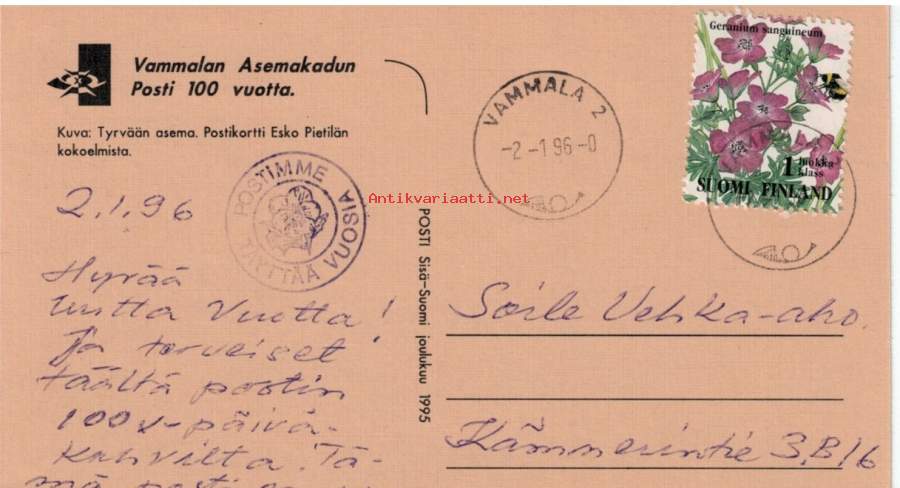 Vammalan Asemakadun
Posti 100 vuotta.
Kuva: Tyrvään asema. Postikortti Esko Pietilän
kokoelmista.
2.1.96
POSTIMME
TÄYTTÄÄ VUOSIA
Hyvää
Uutta Vuotta!
Ja terveiset
täältä postin
100v-päivä-
kahvilta. Tä-
mä posti
POSTI Sisä-Suomi joulukuu 1995
VAMMALA 2
-2.-1.96-0
Geranium sanguineum
1 luokka
klass
SUOMI FINLAND
Antikvariaatti.net
Soile Vehka-aho.
Kämmerintie 3.B.16